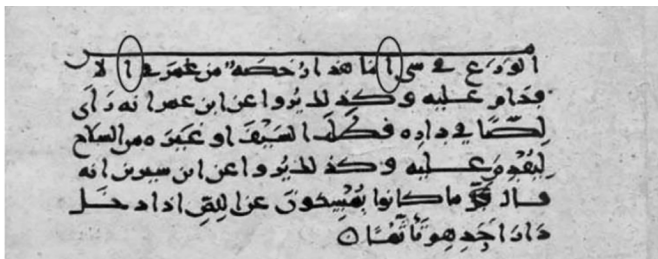 الورع في شي انما هذا رخصة من عمر في الا
قدام عليه وكذلك يروا عن ابن عمر انه رأى
لصًّا في داره فطلب السيف او غيره من السلاح
ليقوم عليه وكذلك يروا عن ابن سيرين انه
قال ما كانوا يمسكون عن اللص اذا دخل
دار احدهم تأثمًا